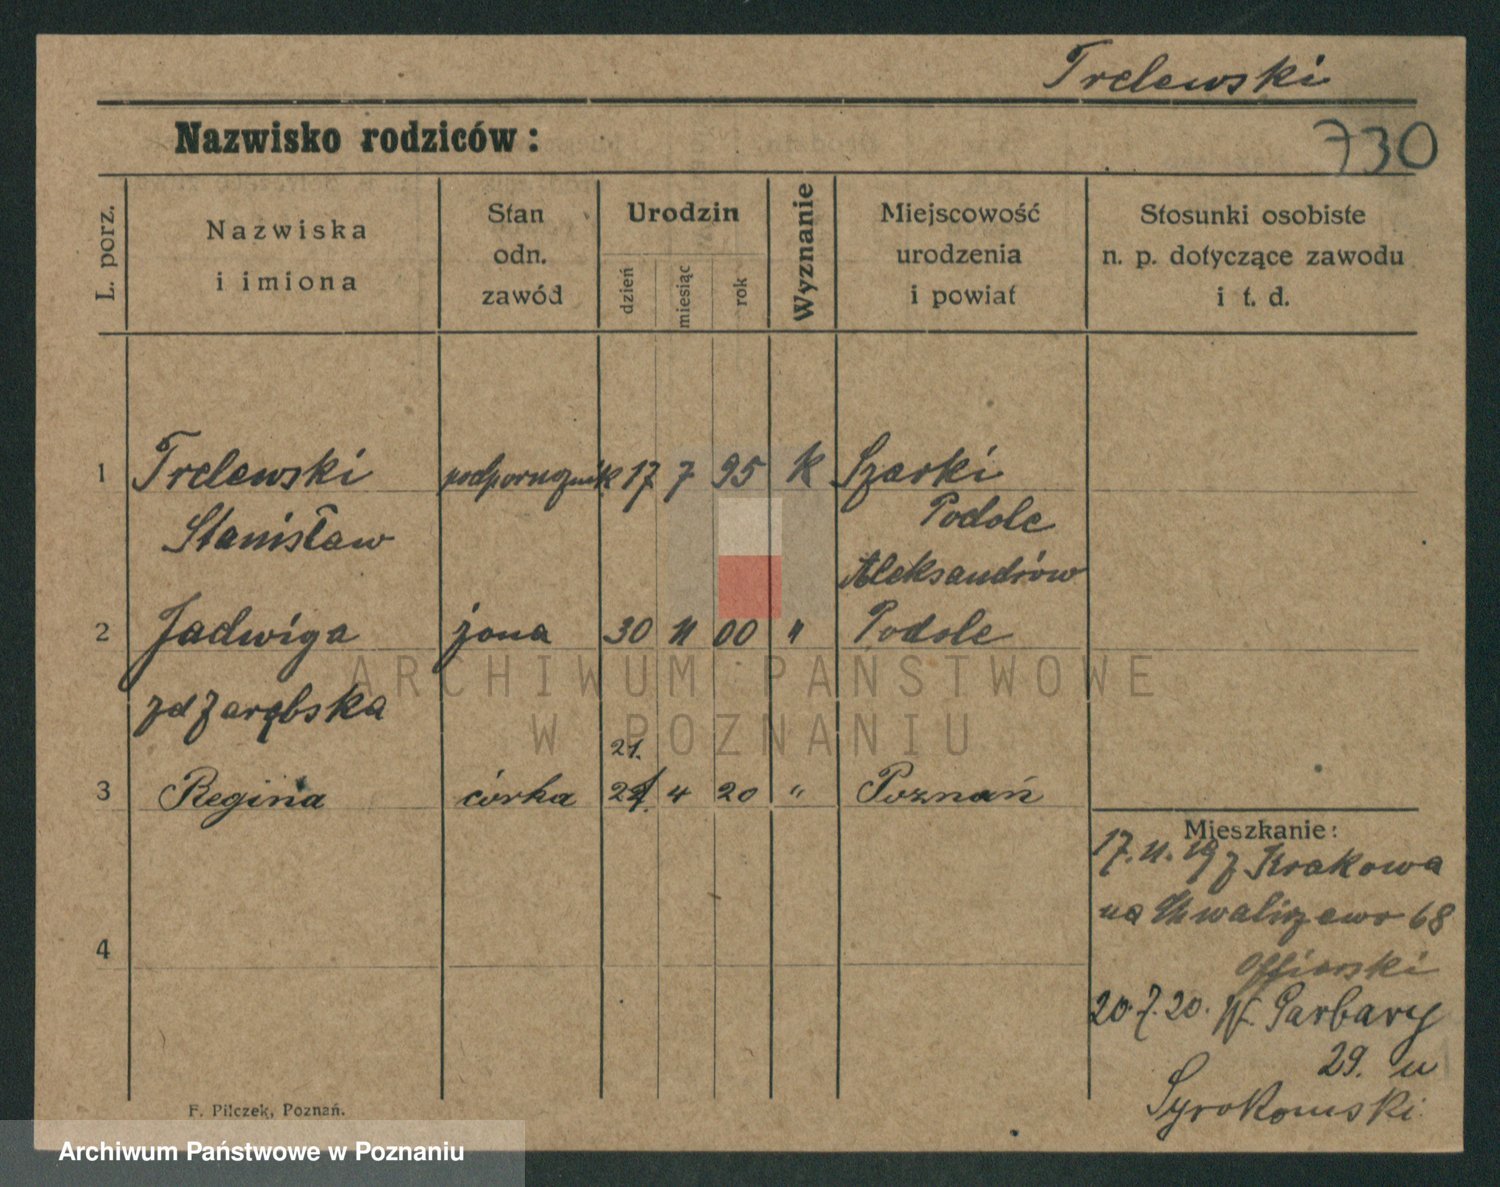 Trelewski
Nazwisko rodziców:
730
L. porz.
Nazwiska
i imiona
Stan
odn.
zawód
Urodzin
dzień
miesiąc
rok
Wyznanie
Miejscowość
urodzenia
i powiat
Stosunki osobiste
n. p. dotyczące zawodu
i t. d.
1 Trelewski podporucznik 17 7 95 k Szarki
Stanisław Podole
Aleksandrów
2 Jadwiga żona 30 11 00 " Podole
zd Zarębska
21.
3 Regina córka 4 20 " Poznań
4
Mieszkanie:
17. 11. 19 z Krakowa
na Chwaliszewo 68
20. 7. 20. W. Garbary
29. u
Syrokomski
F. Pilczek, Poznań.
ARCHIWUM PAŃSTWOWE
W POZNANIU
Archiwum Państwowe w Poznaniu